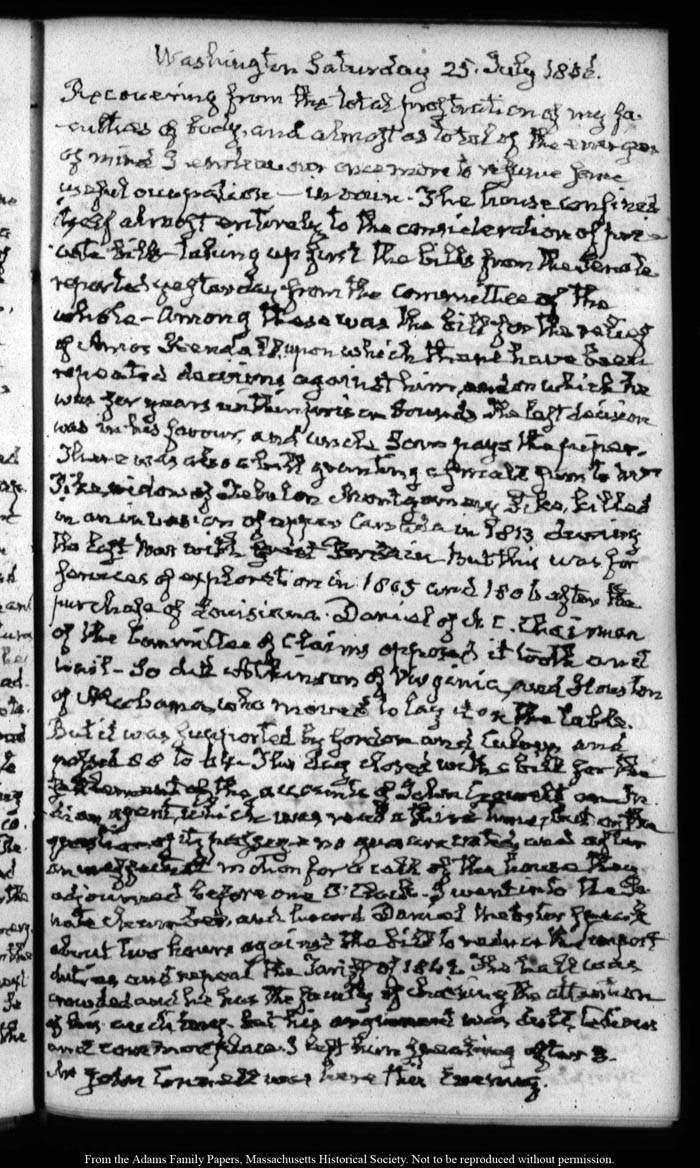 Washington Saturday 25. July 1846.
Recovering from the total prostration of my fa-
culties of body, and almost as total of the energies
of mind I endeavour once more to resume some
useful occupation — in vain. The house confined
itself almost entirely to the consideration of pri-
vate bills — taking up first the bills from the Senate
reported yesterday from the committee of the
whole — Among these was the bill for the relief
of Amos Kendall, upon which there have been
repeated decisions against him, and on which he
was for years within prison bounds. The last decision
was in his favour, and Uncle Sam pays the piper.
There was also a bill granting a small sum to Mrs
Pike, widow of Zebulon Montgomery Pike, killed
in an invasion of upper Canada in 1813 during
the last War with Great Britain. But this was for
services of exploration in 1805 and 1806 after the
purchase of Louisiana. Daniel of N. C. Chairman
of the Committee of Claims opposed it tooth and
nail — So did Atkinson of Virginia, and Houston
of Alabama, who moved to lay it on the table.
But it was supported by Gordon and and
passed 88 to The day closed with a bill for the
settlement of the accounts of John Crowell an In-
dian agent, which was read a third time, but on the
question of its passage no quorum voted, and after
an ineffectual motion for a call of the house they
adjourned before one O'Clock. I went into the Se-
nate chamber, and heard Daniel Webster speak
about two hours against the bill to reduce the import
duties and repeal the Tariff of 1842. The hall was
crowded and he has the faculty of chaining the attention
of his auditory. but his argument was dull, tedious
and common place. I left him speaking after 3.
Mr John Connell was here this Evening.
From the Adams Family Papers, Massachusetts Historical Society. Not to be reproduced without permission.